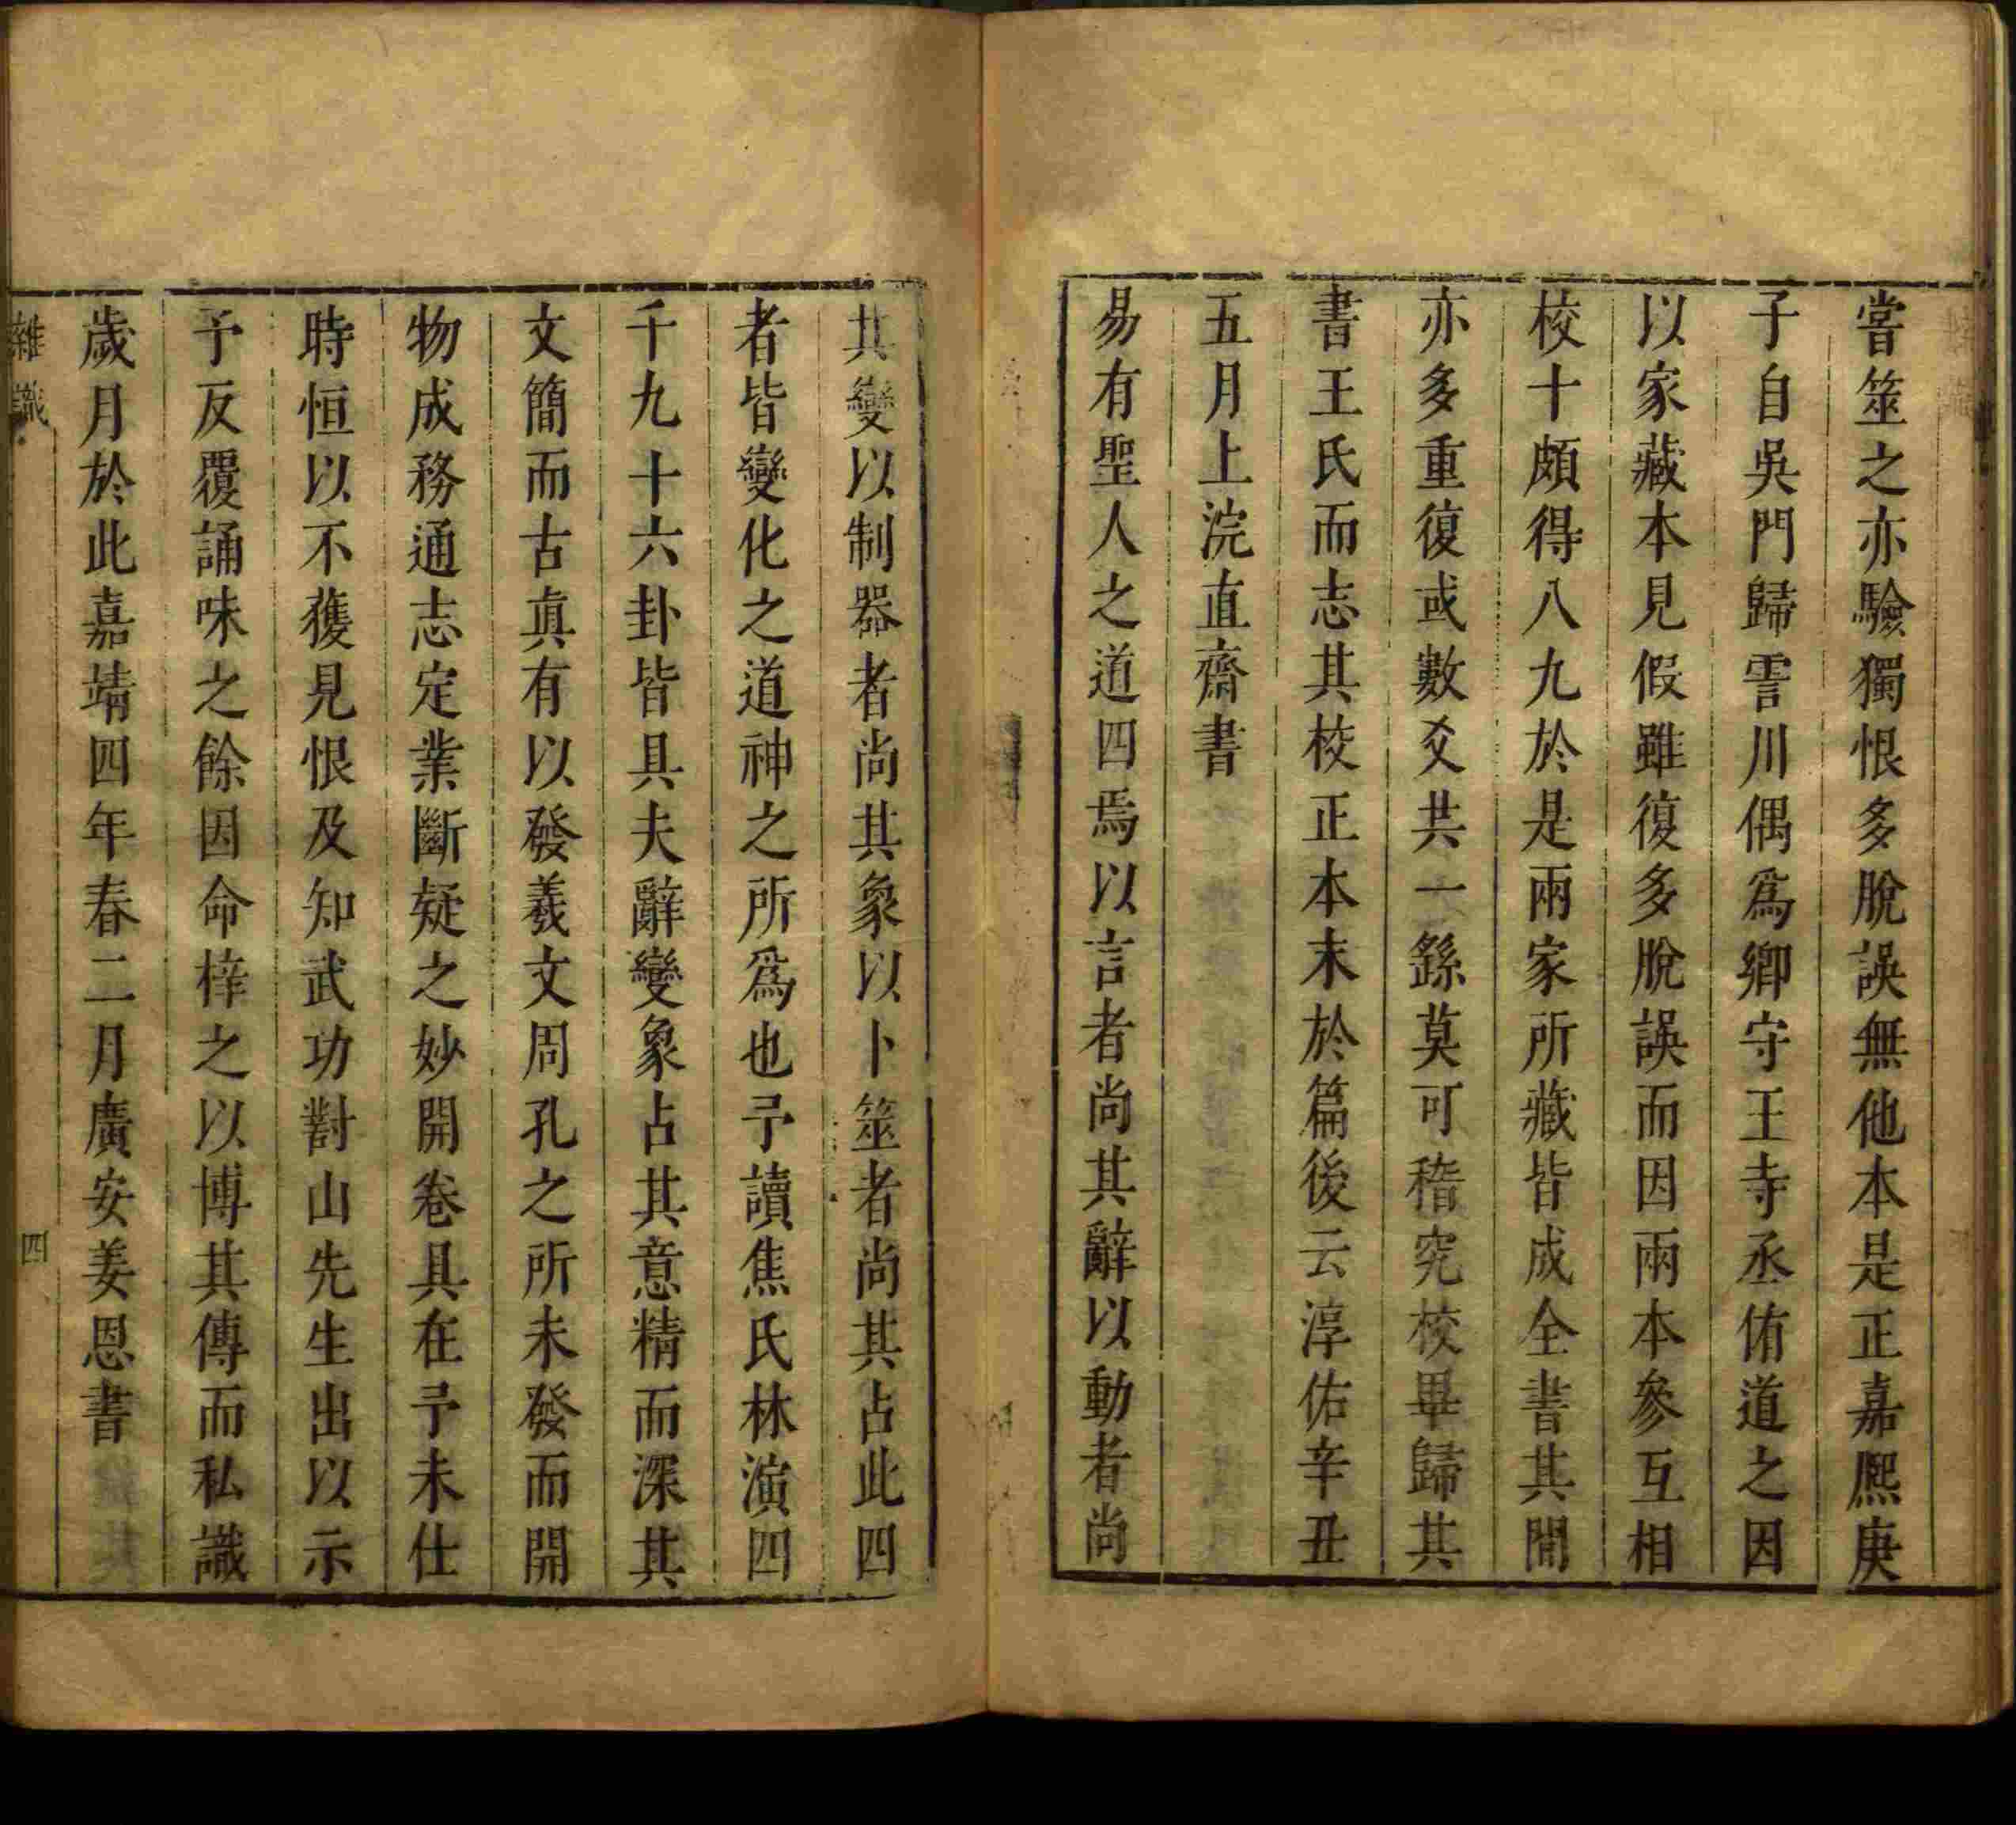 嘗筮之亦驗獨恨多脫誤無他本是正嘉熈庚
子自吳門歸霅川偶爲鄉守王寺丞侑道之因
以家藏本見假雖復多脫誤而因兩本參互相
校十頗得八九於是兩家所藏皆成全書其間
亦多重復或數爻共一繇莫可稽究校畢歸其
書王氏而志其校正本末於篇後云淳佑辛丑
五月上浣直齋書
易有聖人之道四焉以言者尚其辭以動者尚
其變以制器者尚其象以卜筮者尚其占此四
者皆變化之道神之所爲也予讀焦氏林演四
千九十六卦皆具夫辭變象占其意精而深其
文簡而古真有以發羲文周孔之所未發而開
物成務通志定業斷疑之妙開卷具在予未仕
時恒以不獲見恨及知武功對山先生出以示
予反覆誦味之餘因命梓之以博其傳而私識
歲月於此嘉靖四年春二月廣安姜恩書
雜識
四